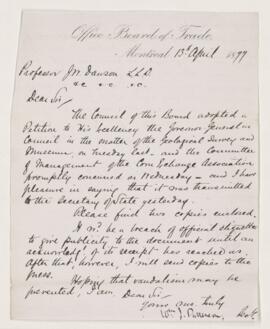 Office Board of Trade.
Montreal 13th April 1877
Professor J.W. Dawson L.L.D.
&c. &c. &c.
Dear Sir/
The Council of this Board adopted a
Petition to His Excellency the Governor General in
Council in the matter of the Geological Survey and
Museum, on Tuesday last, and the Committee
of Management of the Corn Exchange Association
promptly concurred on Wednesday – and I have
pleasure in saying that it was transmitted
to the Secretary of State yesterday.
Please find two copies enclosed.
It wd. be a breach of official etiquette
to give publicity to the document until an
acknowledgt. of its receipt has reached us.
After that, however, I will send copies to the
press.
Hoping that vandalism may be
prevented, I am, Dear Sir,
Yours mo. truly
Wm. J.